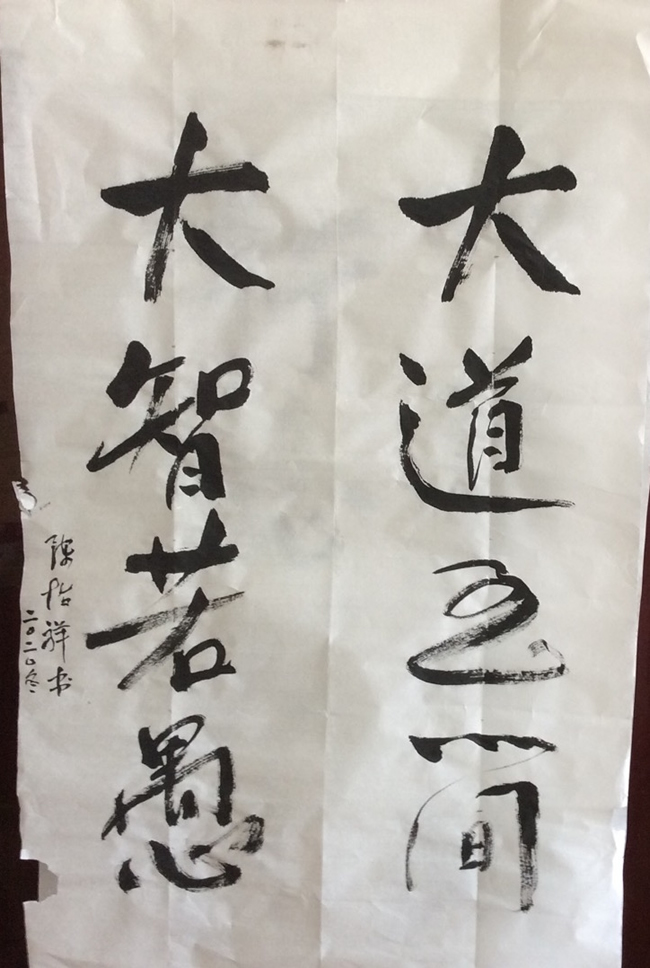 大道至简
大智若愚
陈怡祥书
二〇二〇冬